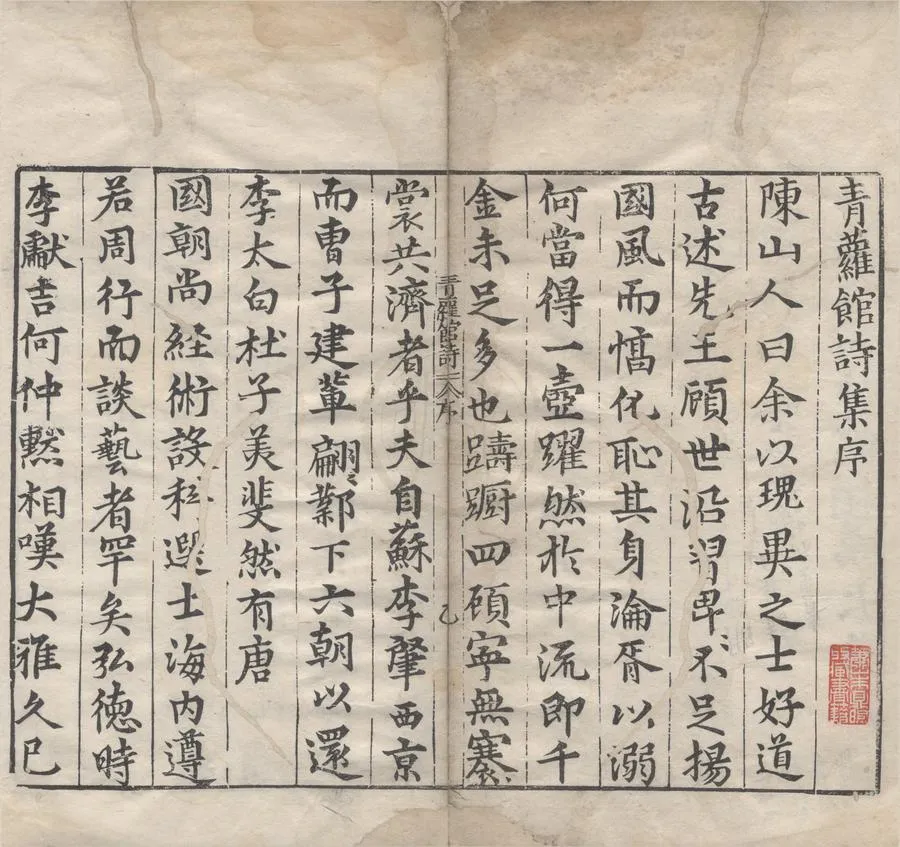 青蘿館詩集序
陳山人曰余以瑰異之士好道
古述先王顧世沿習卑不足揚
國風而憰化恥其身淪胥以溺
何當得一壺躍然於中流即千
金未足多也躊躕四顧寧無褰
青蘿館詩 序
裳共濟者乎夫自蘇李肇西京
而曹子建輩翩翩鄴下六朝以還
李太白杜子美斐然有唐
國朝尚經術設科選士海內遵
若周行而談藝者罕矣弘德時
李獻吉何仲默相嘆大雅久已